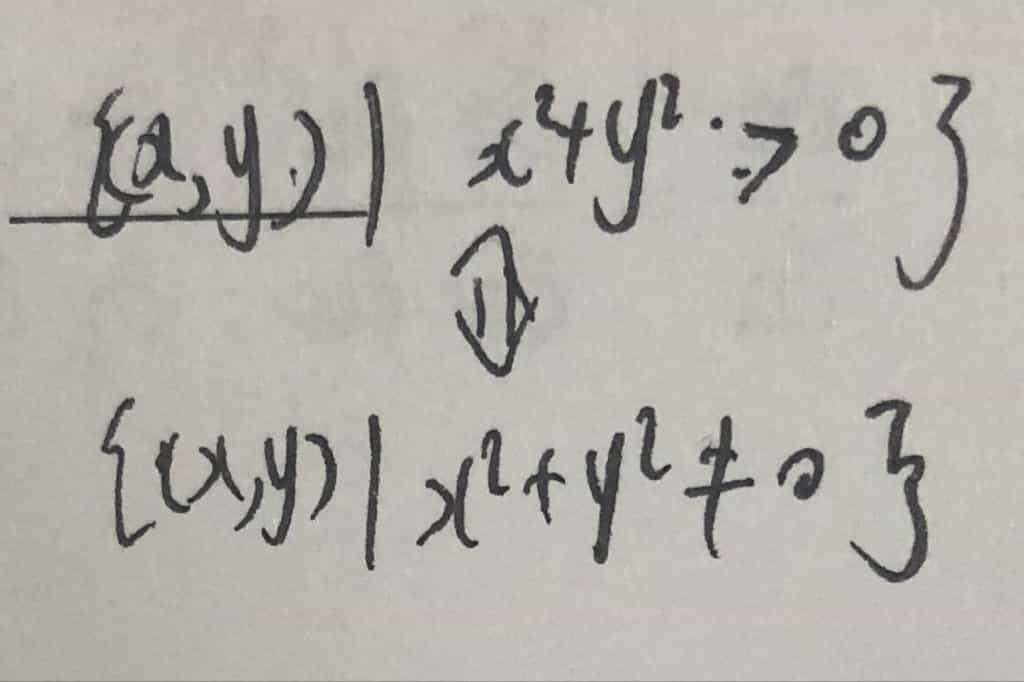 {(x,y)| x²+y² > 0}
⇕
{(x,y)| x²+y² ≠ 0}